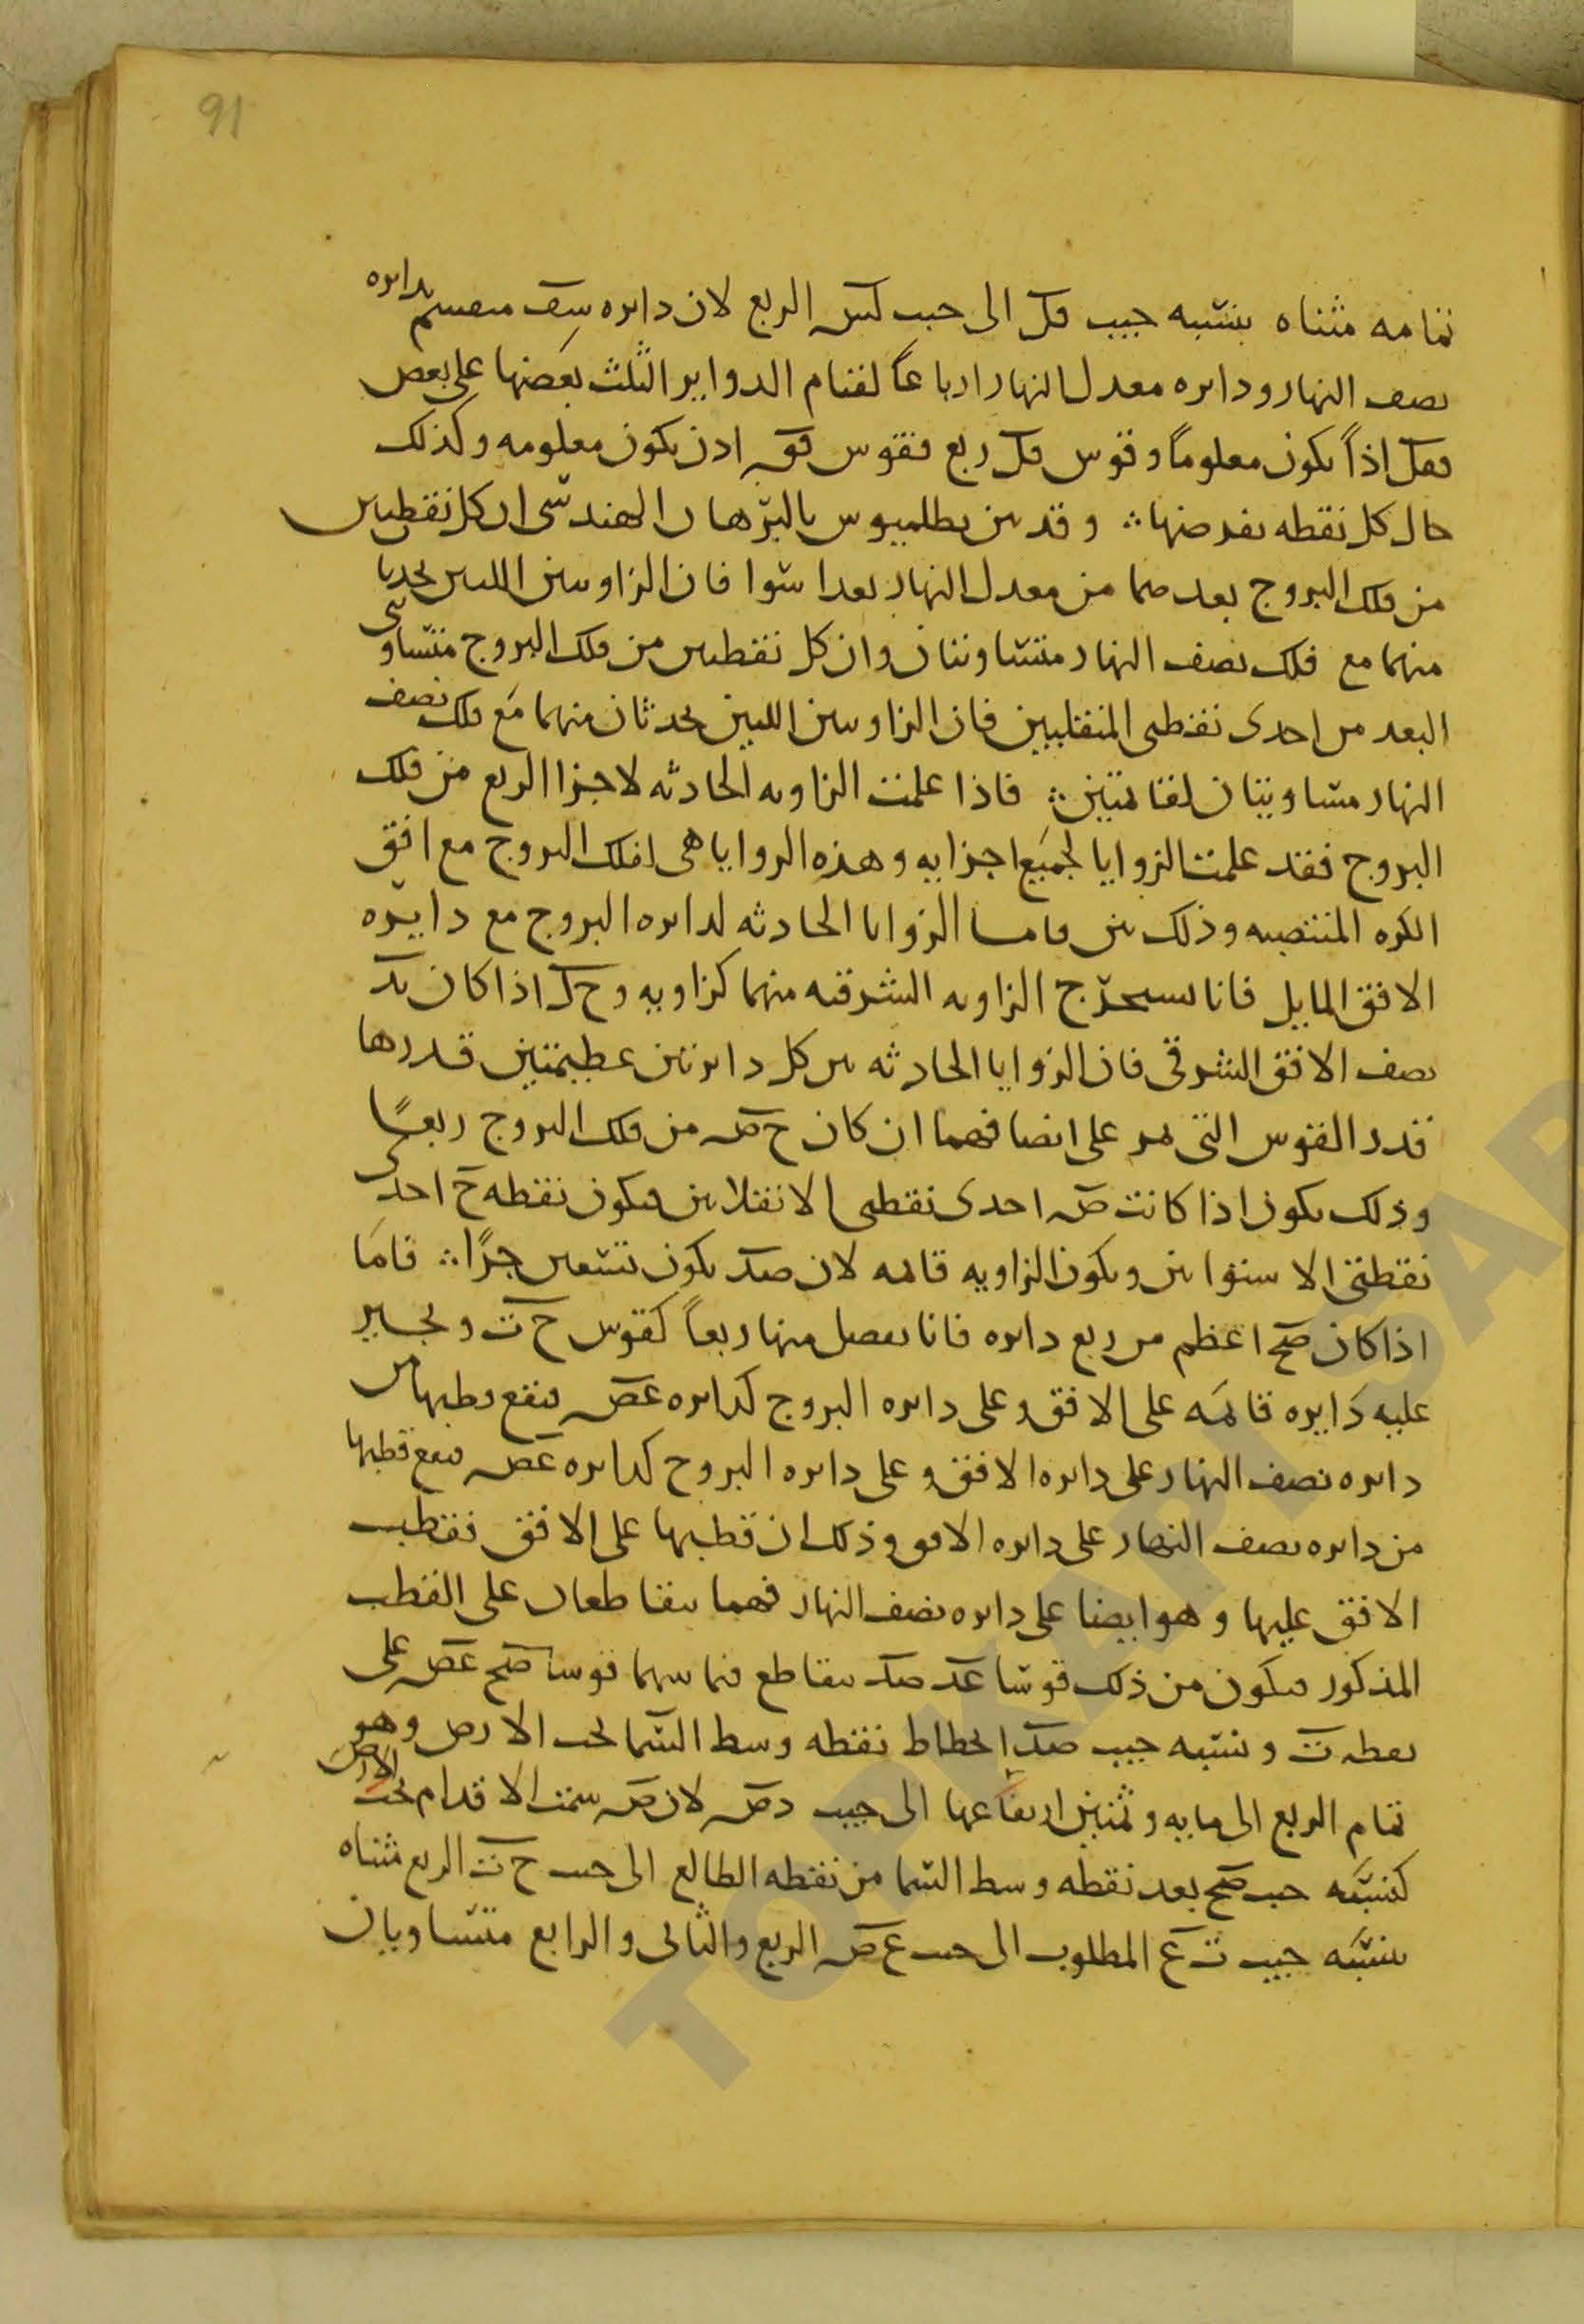 91
تمامه مثناه بنسبه جيب فك الى جيب لس الربع لان دايره سف منقسم بدايره
نصف النهار ودايره معدل النهار ارباعاً لقيام الدواير الثلث بعضها على بعض
فك اذاً يكون معلوماً وقوس فك ربع فقوس اذن يكون معلومه وكذلك
حال كل نقطه نفرضها ∴ وقد بين بطلميوس بالبرهان الهندسى ان كل نقطتين
من فلك البروج بعدهما من معدل النهار بعدا سوا فان الزاويتين اللتين تحدثا
منهما مع فلك نصف النهار متساويتان وان كل نقطتين من فلك البروج متساوى
البعد من احدى نقطتى المنقلبين فان الزاويتين اللتين تحدثان منهما مع فلك نصف
النهار مساويتان لقائمتين ∴ فاذا علمت الزاويه الحادثه لاجزا الربع من فلك
البروج فقد علمت الزوايا لجميع اجزايه وهذه الزوايا هى لفلك البروج مع افق
الكره المنتصبه وذلك بين فاما الزوايا الحادثه لدايره البروج مع دايره
الافق المايل فانا نستخرج الزاويه الشرقيه منهما كزاويه د ح ك اذا كان
نصف الافق الشرقى فان الزوايا الحادثه من كل دايرتين عظيمتين قدرها
قدر القوس التى تمر على انصافهما ان كان ح ص من فلك البروج ربعاً
وذلك يكون اذا كانت ص احدى نقطتى الانقلابين فيكون نقطه ح احدى
نقطتى الاستوايين ويكون الزاويه قائمه لان صد يكون تسعين جزاً ∴ فاما
اذا كان صح اعظم من ربع دايره فانا نفصل منها ربعاً كقوس ح ت ونجيز
عليه دايره قائمه على الافق وعلى دايره البروج كدايره عص فيقع قطبها من
دايره نصف النهار على دايره الافق وعلى دايره البروج كدايره عص فيقع قطبها
من دايره نصف النهار على دايره الافق وذلك ان قطبها على الافق فقطب
الافق عليها وهو ايضا على دايره نصف النهار فهما يتقاطعان على القطب
المذكور فيكون من ذلك قوسا عد صد يتقاطع فيما بينهما قوسا صح عص على
نقطه ت ونسبه جيب صد انحطاط نقطه وسط السما تحت الارض وهو
تمام الربع الى مايه وثمنين ارتفاعها الى جيب دص لان ص سمت الاقدام تحت الارض
كنسبه جيب صح بعد نقطه وسط السما من نقطه الطالع الى جيب ح ت الربع مثناه
بنسبه جيب ت ع المطلوب الى جيب ع ص الربع والثانى والرابع متساويان